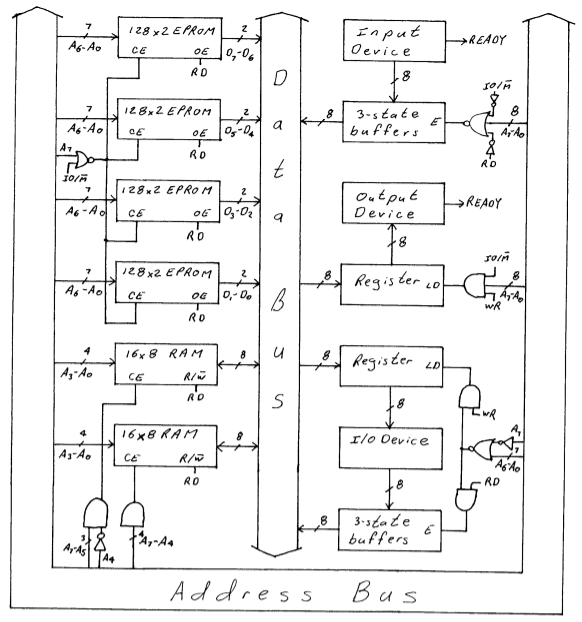 7
A6-A0
128x2 EPROM
CE OE
RD
2
D7-D6
7
A6-A0
128x2 EPROM
CE OE
RD
2
D5-D4
A7
IO/M̅
7
A6-A0
128x2 EPROM
CE OE
RD
2
D3-D2
7
A6-A0
128x2 EPROM
CE OE
RD
2
D1-D0
4
A3-A0
16x8 RAM
CE R/W̅
RD
8
4
A3-A0
16x8 RAM
CE R/W̅
RD
8
3
A7-A5
A4
4
A7-A4
Data
Bus
Input
Device
READY
8
8
3-state
buffers E
IO/M̅
RD
8
A7-A0
Output
Device
READY
8
8
Register LD
IO/M̅
WR
8
A7-A0
8
Register LD
WR
8
I/O Device
A7
7
A6-A0
RD
8
8
3-state
buffers E
Address Bus